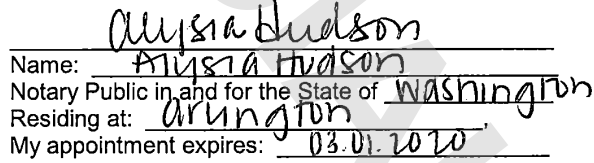 Alysia Hudson
Name: Alysia Hudson
Notary Public in and for the State of Washington
Residing at: Arlington,
My appointment expires: 03.01.2020